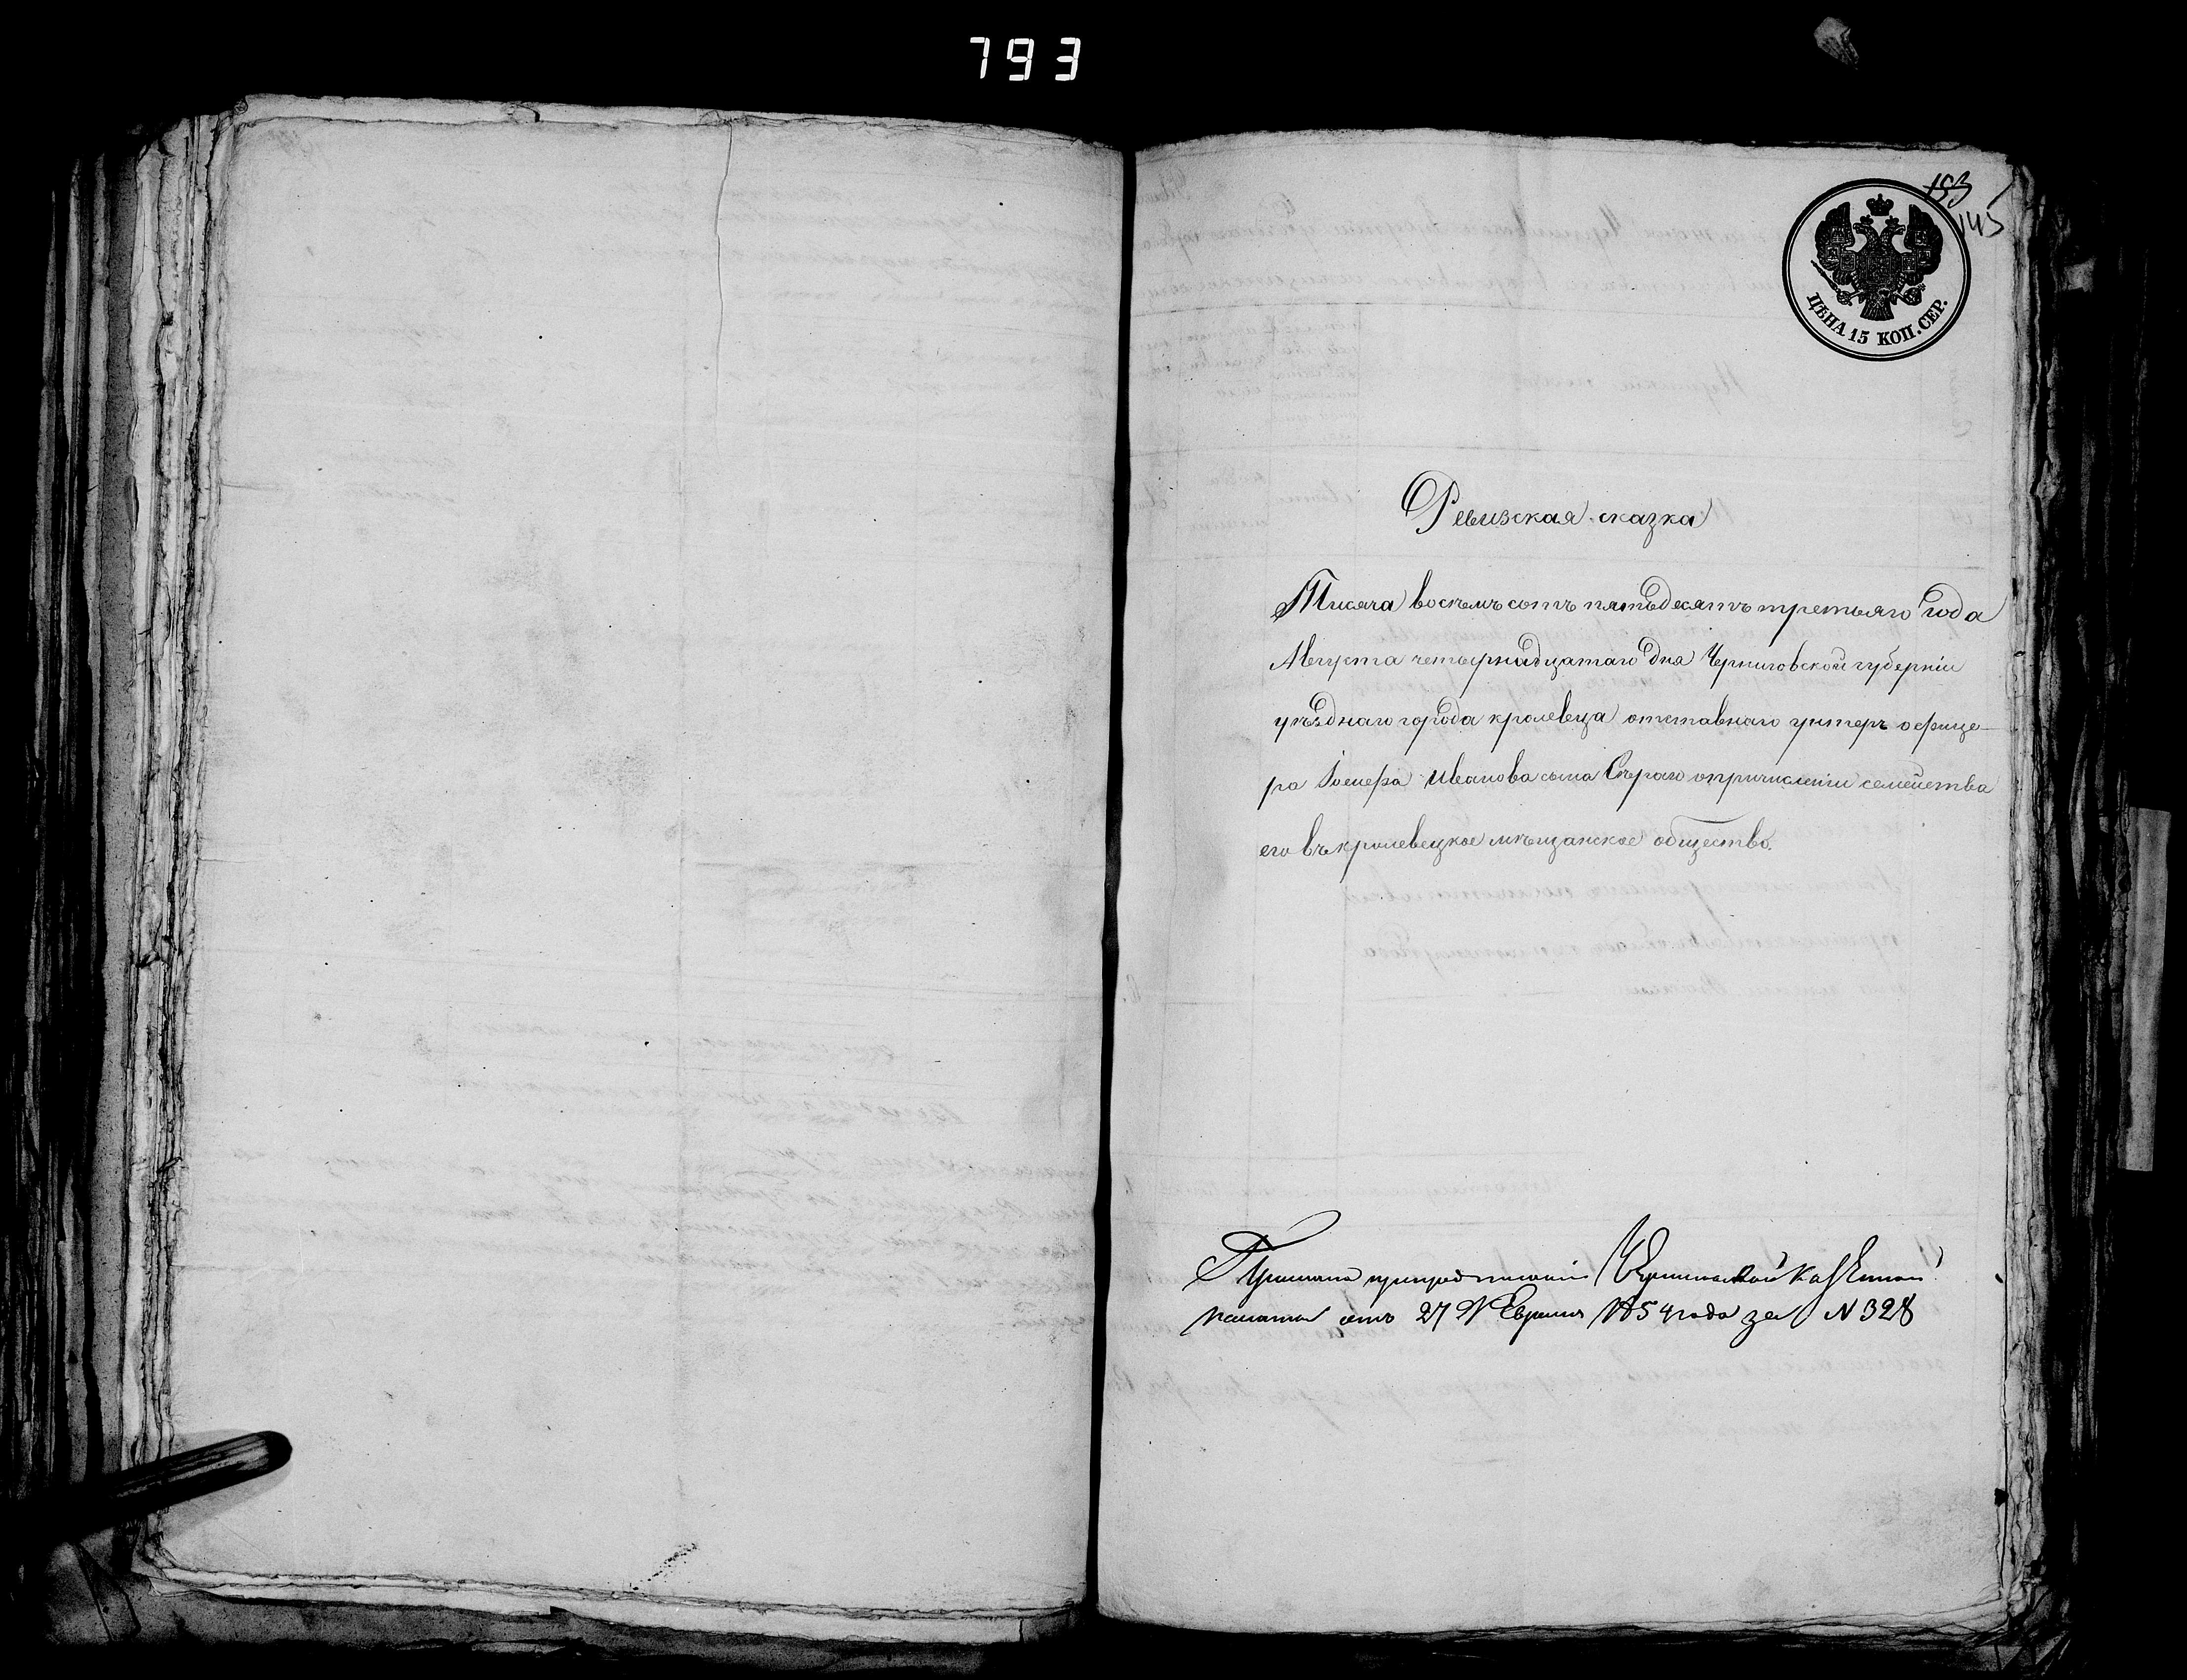 793
153
145
ЦѢНА 15 КОП. СЕР.
Ревизская сказка
Тисяча восѣмъ сотъ пятьдесятъ третьяго года
Августа четырнадцатаго дня Черниговской губерніи
уѣзднаго города кролевца отставнаго унтеръ офице-
ра Іосифа Иванова сына Сѣраго опричисленіи семейства
его въ кролевецкое мѣщанское общество.
При Черниговской Казенной
палаты отъ 27 Февраля 1854 года за N 328